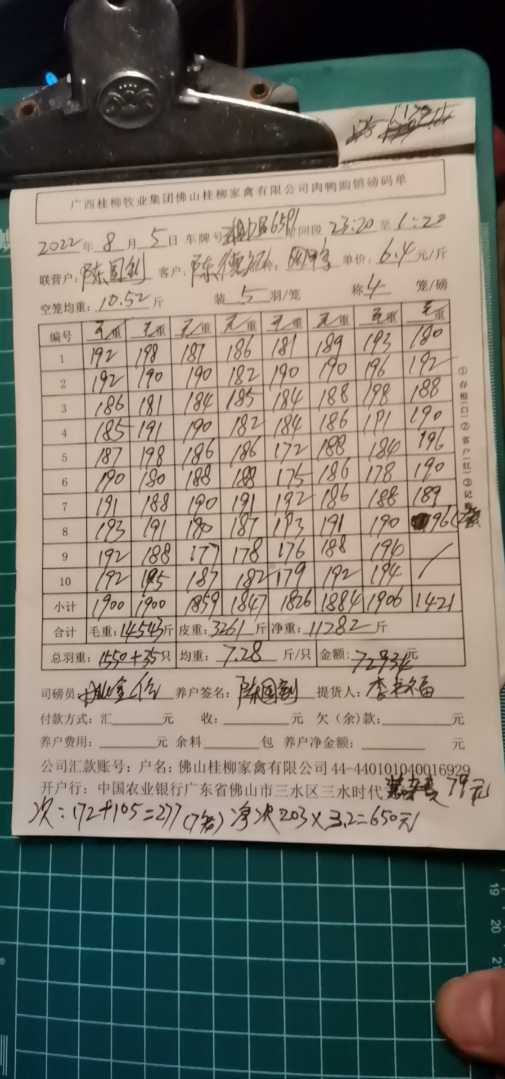 广西桂柳牧业集团佛山桂柳家禽有限公司肉鸭购销磅码单
2022年 8月 5日 车牌号 时间段 23:20 至 1:20
联营户：陈国利 客户：陈德 单价：6.4元/斤
空笼均重：10.52斤 装 5 羽/笼 称 4 笼/磅
编号 毛重 毛重 毛重 毛重 毛重 毛重 毛重 毛重
1 192 198 187 186 181 189 193 180
2 192 190 190 182 190 190 196 192
3 186 181 184 185 184 188 198 188
4 185 191 190 182 184 186 191 190
5 187 198 186 186 172 188 184 196
6 190 180 188 188 175 186 178 190
7 191 188 190 191 192 186 188 189
8 193 191 180 187 193 191 190 96
9 192 188 177 178 176 188 196 /
10 192 195 187 182 179 192 194 /
小计 1900 1900 1859 1847 1826 1884 1906 1421
合计 毛重：14543斤 皮重：3261斤 净重：11282斤
总羽重：1550+35只 均重：7.28斤/只 金额：72934元
司磅员 养户签名：陈国利 提货人：李
付款方式：汇 元 收： 元 欠（余）款： 元
养户费用： 元 余料 包 养户净金额： 元
公司汇款账号：户名：佛山桂柳家禽有限公司 44-440101040016929
开户行：中国农业银行广东省佛山市三水区三水时代 79元
次：172+105=277（7笼）净次 203×3.2=650元
①存根（白）②客户（红）③记
19
20
21